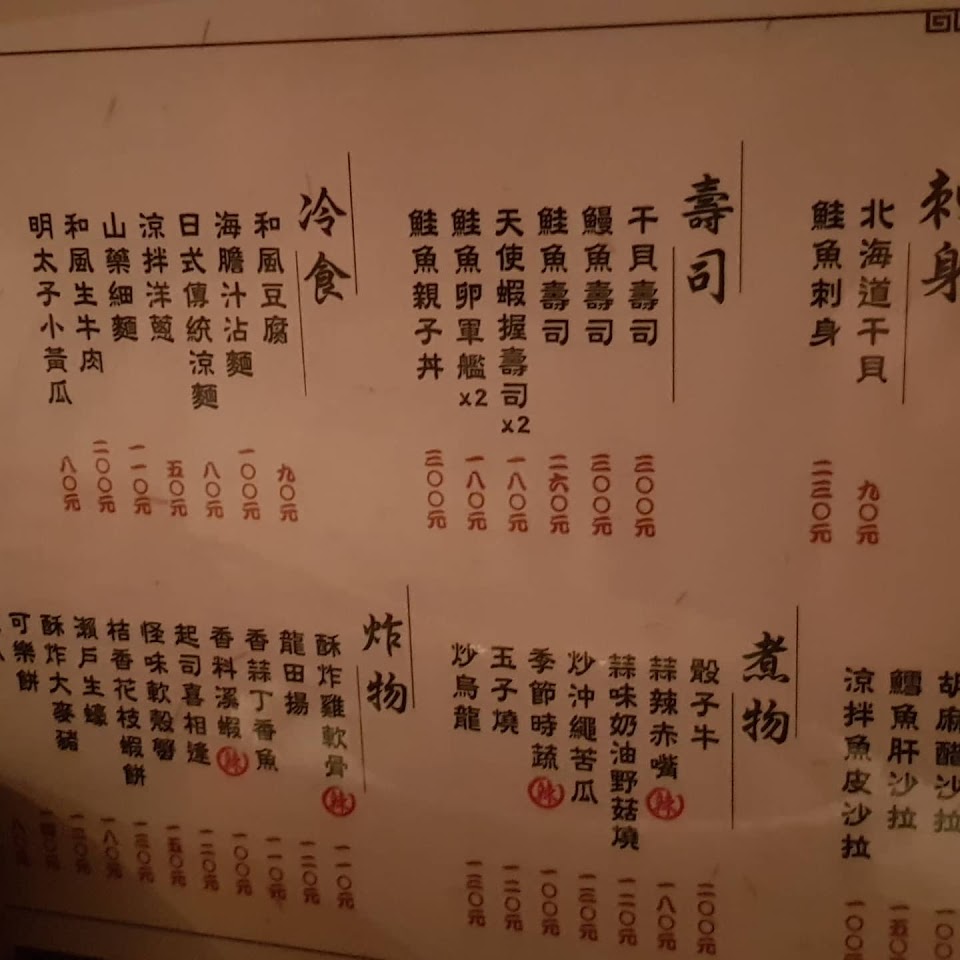 刺身
北海道干貝 九〇元
鮭魚刺身 二三〇元
壽司
干貝壽司 三〇〇元
鰻魚壽司 三〇〇元
鮭魚壽司 二六〇元
天使蝦握壽司x2 一八〇元
鮭魚卵軍艦x2 一八〇元
鮭魚親子丼 三〇〇元
冷食
和風豆腐 九〇元
海膽汁沾麵 一〇〇元
日式傳統涼麵 八〇元
涼拌洋蔥 五〇元
山藥細麵 一一〇元
和風生牛肉 二〇〇元
明太子小黃瓜 八〇元
胡麻醋沙拉 一〇〇
鱈魚肝沙拉 一五〇
涼拌魚皮沙拉 一〇〇元
煮物
骰子牛 二〇〇元
蒜辣赤嘴 辣 一八〇元
蒜味奶油野菇燒 一二〇元
炒沖繩苦瓜 一三〇元
季節時蔬 辣 一〇〇元
玉子燒 一二〇元
炒烏龍 一三〇元
炸物
酥炸雞軟骨 辣 一一〇元
龍田揚 一二〇元
香蒜丁香魚 一一〇元
香料溪蝦 辣 一〇〇元
起司喜相逢 一二〇元
怪味軟殼蟹 一五〇元
桔香花枝蝦餅 一三〇元
瀨戶生蠔 一八〇元
酥炸大麥豬
可樂餅